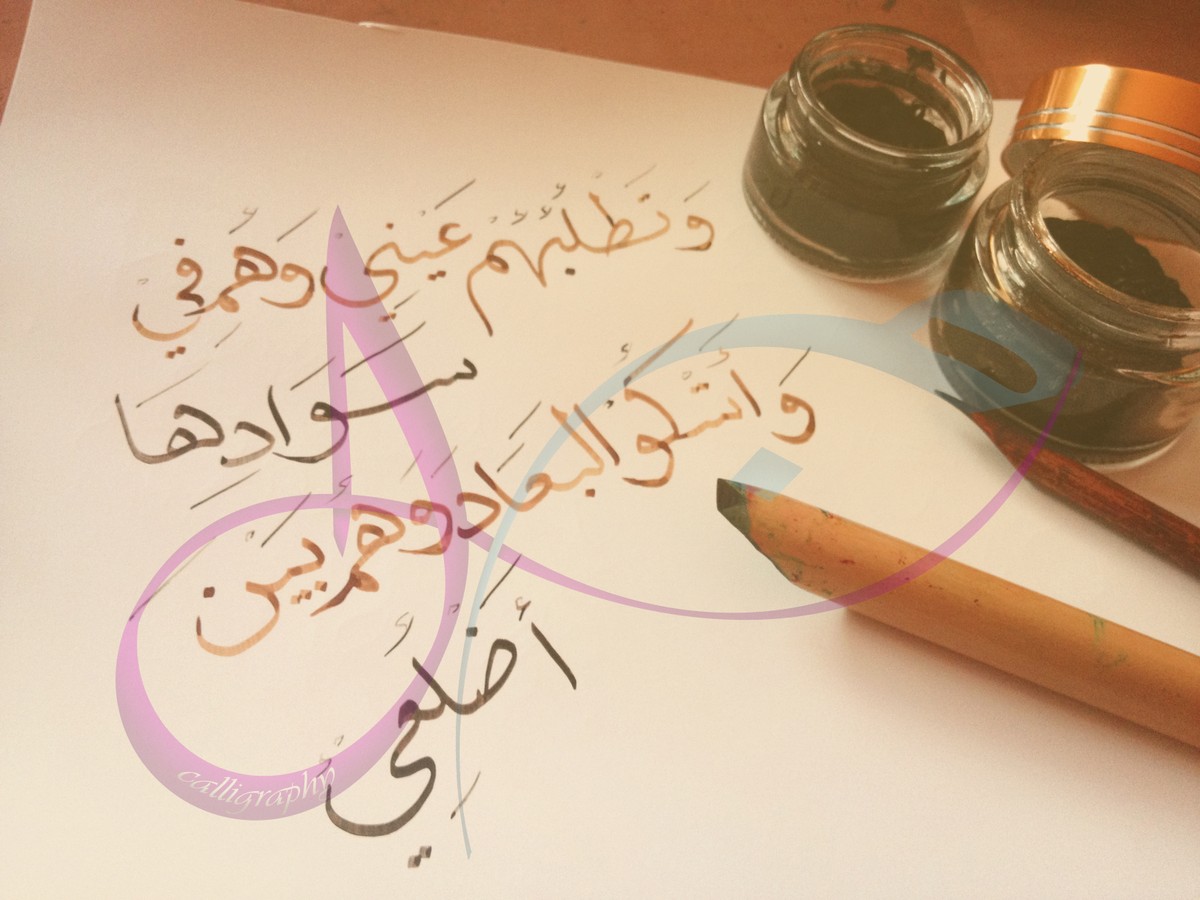 وَتَطْلُبُهُمْ عَيْنِي وَهُمْ فِي
سَوَادِهَا
وَأَشْكُو الْبِعَادَ وَهُمْ بَيْنَ
أَضْلُعِي
calligraphy